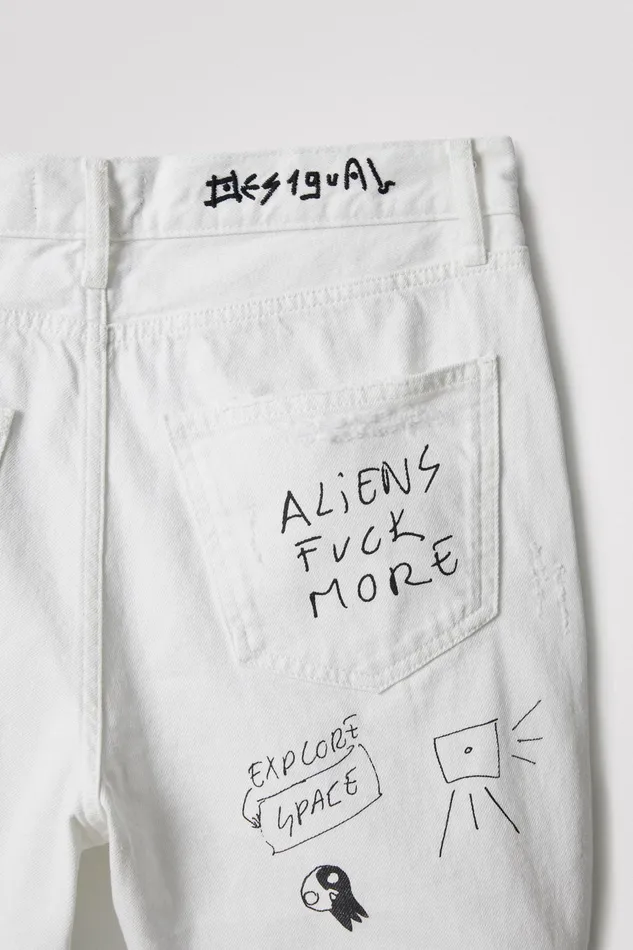 Desigual
ALiENS
FUCK
MORE
EXPLORE
SPACE